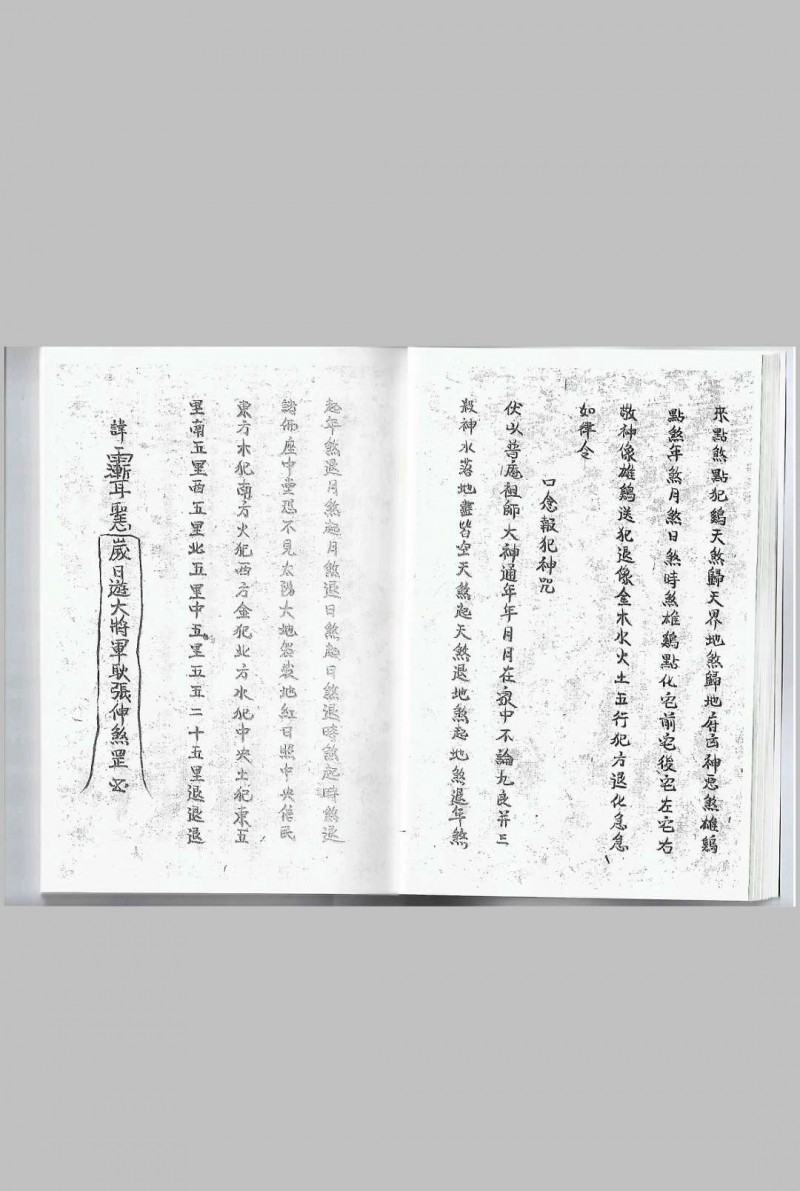 來點煞點犯鷄天煞歸天界地煞歸地府凶神惡煞雄鷄
點煞年煞月煞日煞時煞雄鷄點化宅前宅後宅左宅右
敬神像雄鷄送犯退像金木水火土五行犯方退化急急
如律令
口念報犯神咒
伏以普庵祖師大神通年年月月在家中不論九良并三
殺神水落地盡皆空天煞起天煞退地煞起地煞退年煞
起年煞退月煞起月煞退日煞起日煞退時煞起時煞退
諸佛座中堂恐不見太陽大地袈裟地紅日照中央信民
東方木犯南方火犯西方金犯北方水犯中央土犯東五
里南五里西五里北五里中五里五五二十五里退退退
諱 日遊大將軍耿張仲煞罡